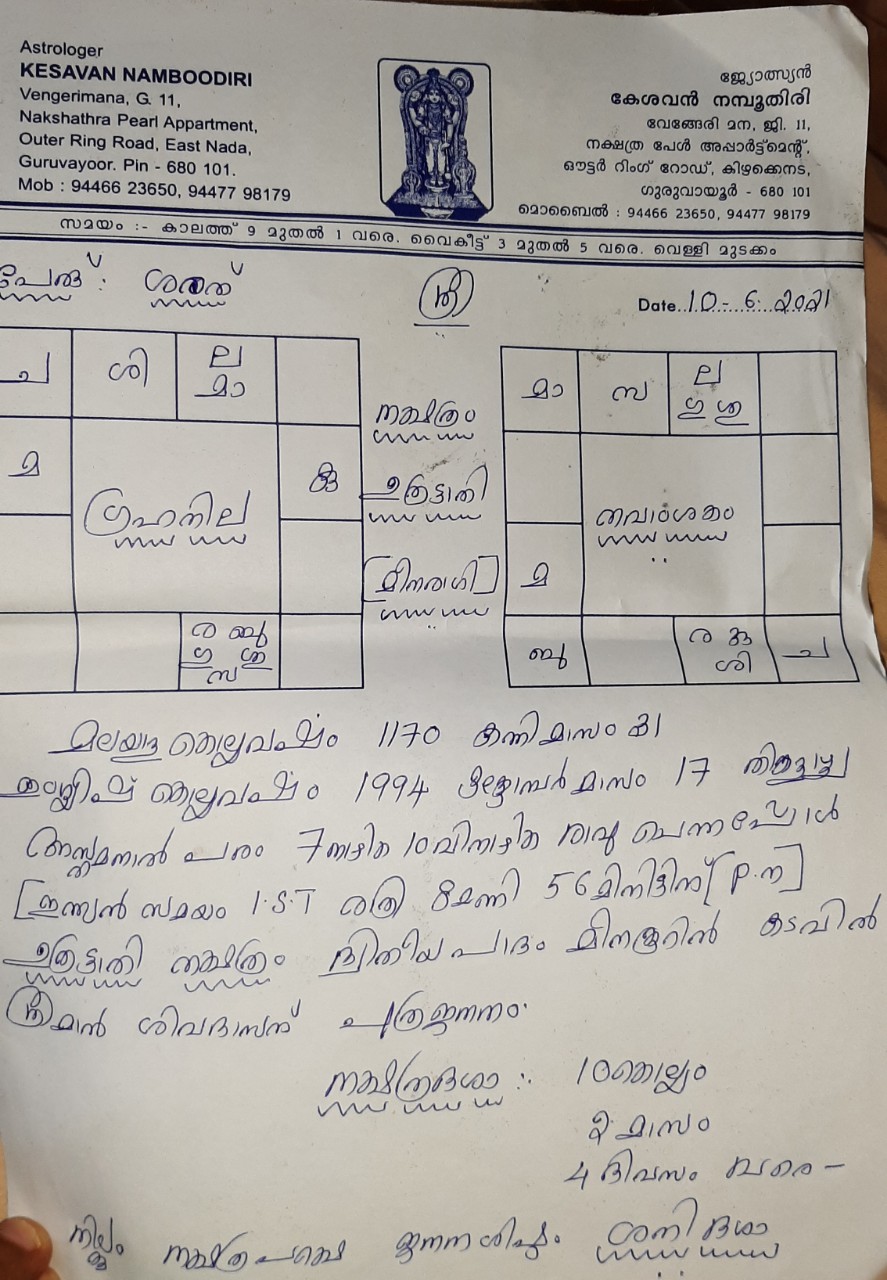 Astrologer
KESAVAN NAMBOODIRI
Vengerimana, G. 11,
Nakshathra Pearl Appartment,
Outer Ring Road, East Nada,
Guruvayoor. Pin - 680 101.
Mob : 94466 23650, 94477 98179
ജ്യോത്സ്യൻ
കേശവൻ നമ്പൂതിരി
വേങ്ങേരി മന, ജി. 11,
നക്ഷത്ര പേൾ അപ്പാർട്ട്മെന്റ്,
ഔട്ടർ റിംഗ് റോഡ്, കിഴക്കെനട,
ഗുരുവായൂർ - 680 101
മൊബൈൽ : 94466 23650, 94477 98179
സമയം :- കാലത്ത് 9 മുതൽ 1 വരെ. വൈകീട്ട് 3 മുതൽ 5 വരെ. വെള്ളി മുടക്കം
പേര് : ശരത്
ശ്രീ
Date..10-6-2021
ച ശി ല
മാ
മ കു
ഗ്രഹനില
ര ബു
ഗു ശു
സ
നക്ഷത്രം
ഉത്രട്ടാതി
[മീനരാശി]
മാ സ ല
ഗു ശു
നവാംശകം
മ
ബു ര കു
ശി ച
മലയാള കൊല്ലവർഷം 1170 കന്നിമാസം 31
ഇംഗ്ലീഷ് കൊല്ലവർഷം 1994 ഒക്ടോബർ മാസം 17 തിങ്കളാഴ്ച
അസ്തമനാൽ പരം 7നാഴിക 10വിനാഴിക രാവു ചെന്നപ്പോൾ
[ഇന്ത്യൻ സമയം I.S.T രാത്രി 8മണി 56മിനിട്ടിന്
ഉത്രട്ടാതി നക്ഷത്രം ദ്വിതീയ പാദം മീനക്കൂറിൻ കടവിൽ
ശ്രീമാൻ ശിവദാസന് പുത്രജനനം.
നക്ഷത്രദശാ :. 10കൊല്ലം
2 മാസം
4 ദിവസം വരെ -
നക്ഷത്ര പക്ഷെ ജനന ശിഷ്ടം ശനി ദശാ